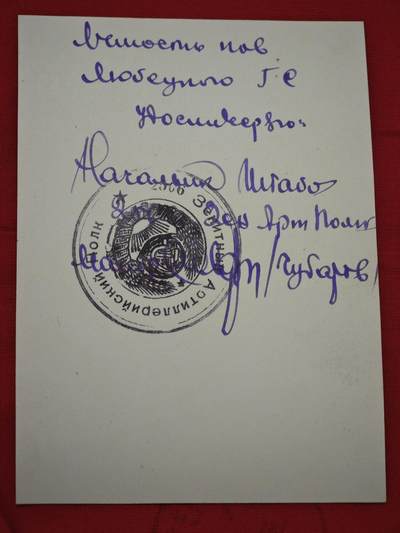 Личность тов
Любецкого Г С
Удостоверяю:
Начальник Штаба
Зен Арт Полк
/Чубаров/
2006 Зенитный Артиллерийский полк